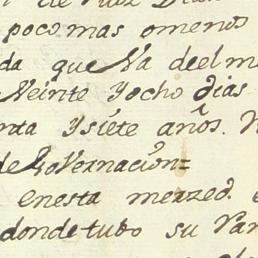 poco mas omenos
da que Va deel m
Veinte Yocho dias
nta Ysiete años.
de Governacion=
enesta merzed
donde tubo su Var